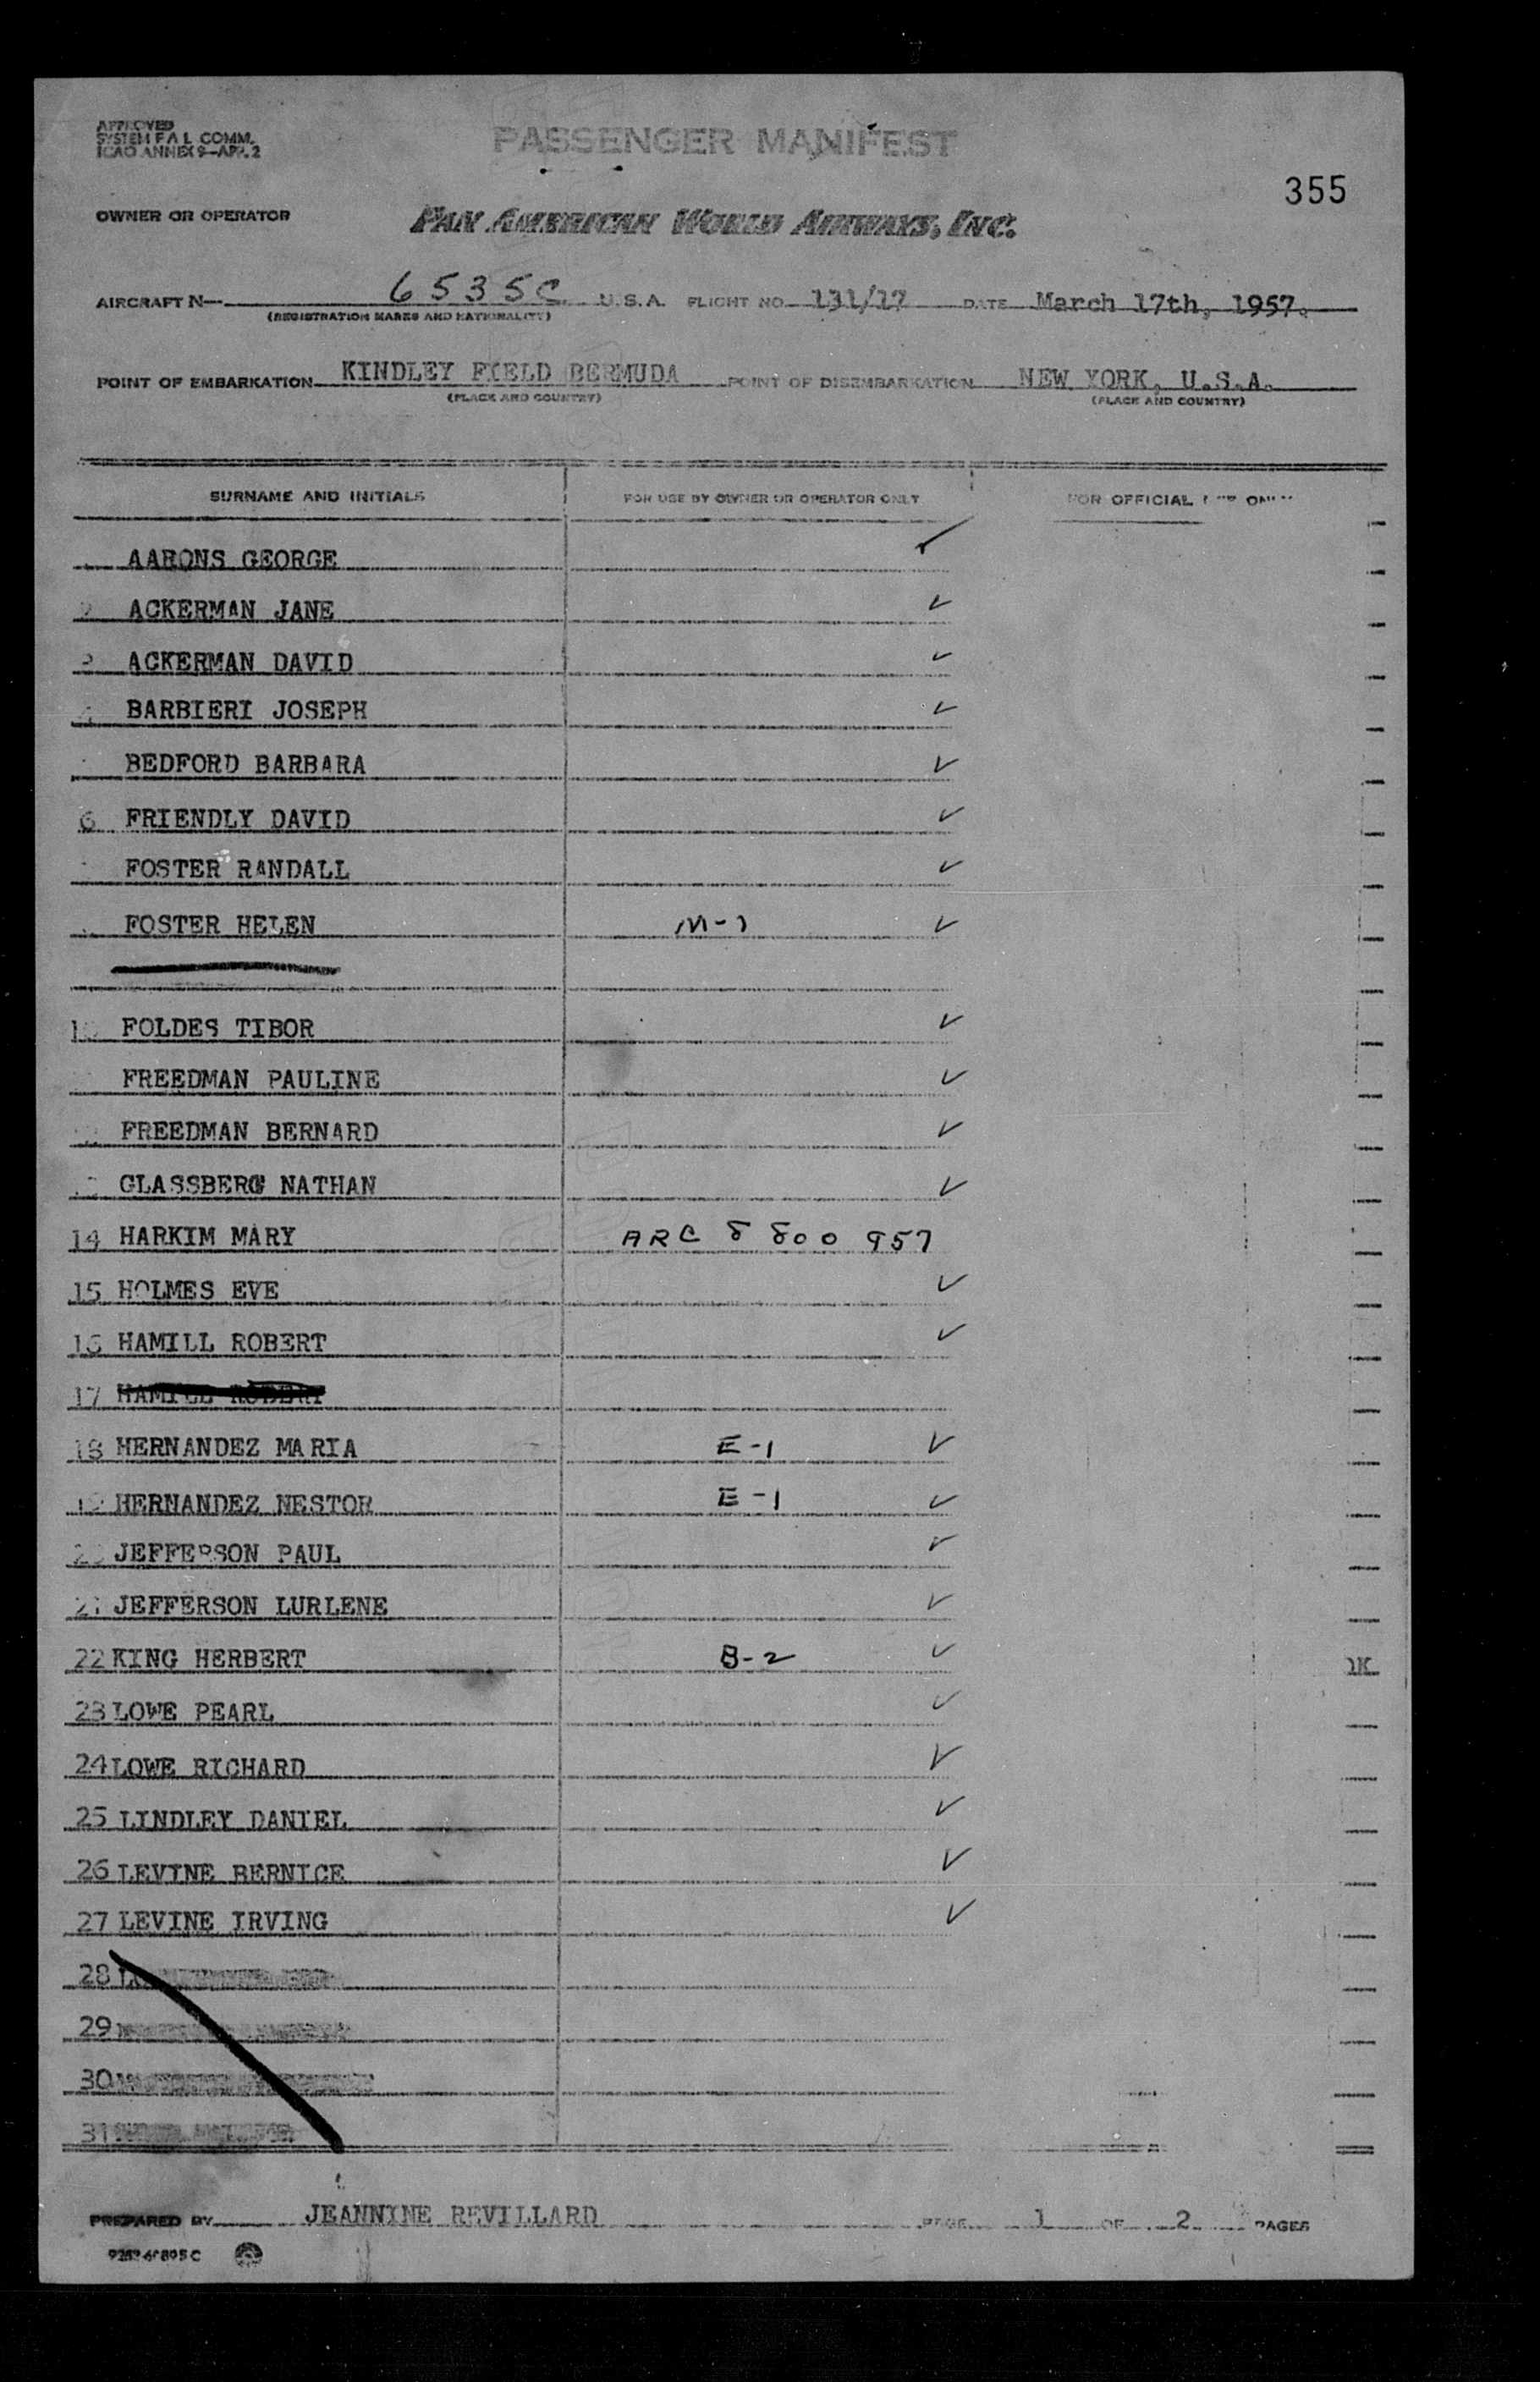 APPROVED
SYSTEM F A L COMM.
ICAO ANNEX 9-APP. 2
PASSENGER MANIFEST
355
OWNER OR OPERATOR PAN AMERICAN WORLD AIRWAYS, INC.
AIRCRAFT N- 6535C U.S.A. FLIGHT NO. 131/17 DATE March 17th, 1957.
(REGISTRATION MARKS AND NATIONALITY)
POINT OF EMBARKATION KINDLEY FIELD BERMUDA POINT OF DISEMBARKATION NEW YORK, U.S.A.
(PLACE AND COUNTRY) (PLACE AND COUNTRY)
SURNAME AND INITIALS FOR USE BY OWNER OR OPERATOR ONLY FOR OFFICIAL
AARONS GEORGE ✓
2 ACKERMAN JANE ✓
3 ACKERMAN DAVID ✓
4 BARBIERI JOSEPH ✓
BEDFORD BARBARA ✓
6 FRIENDLY DAVID ✓
FOSTER RANDALL ✓
FOSTER HELEN M-1 ✓
10 FOLDES TIBOR ✓
FREEDMAN PAULINE ✓
FREEDMAN BERNARD ✓
GLASSBERG NATHAN ✓
14 HARKIM MARY ARC 8 800 957
15 HOLMES EVE ✓
16 HAMILL ROBERT ✓
17 HAMILL ROBERT
18 HERNANDEZ MARIA E-1 ✓
19 HERNANDEZ NESTOR E-1 ✓
20 JEFFERSON PAUL ✓
21 JEFFERSON LURLENE ✓
22 KING HERBERT B-2 ✓
23 LOWE PEARL ✓
24 LOWE RICHARD ✓
25 LINDLEY DANIEL ✓
26 LEVINE BERNICE ✓
27 LEVINE IRVING ✓
28
29
30
31
PREPARED BY JEANNINE REVILLARD PAGE 1 OF 2 PAGES